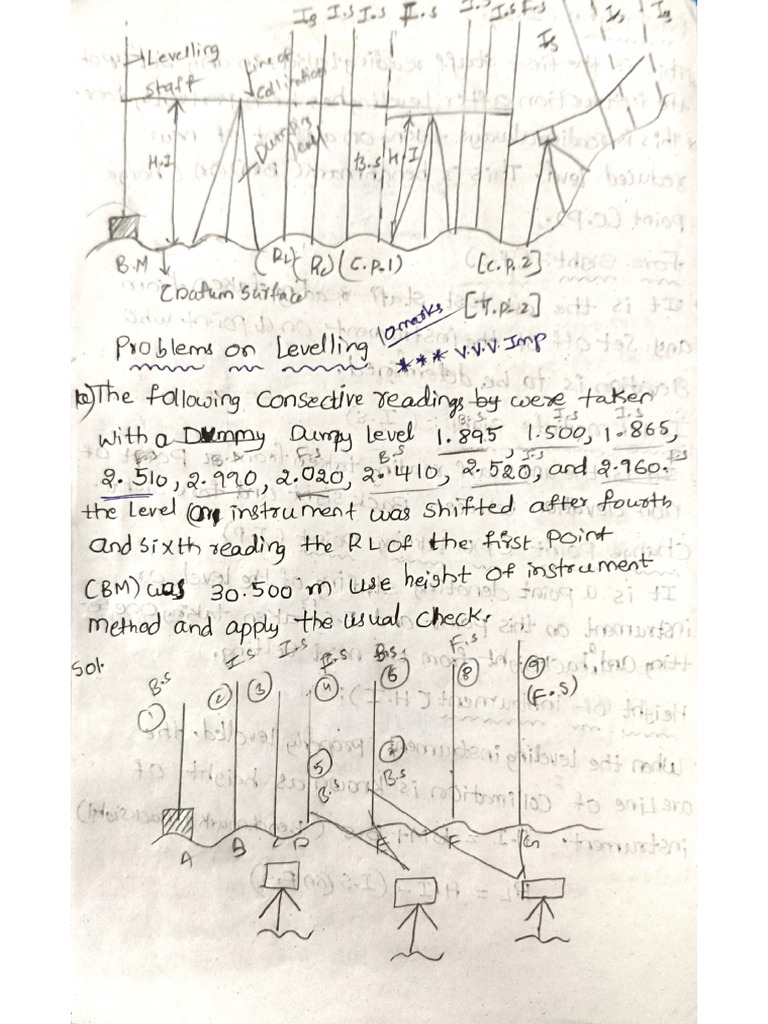 Is I.s I.s I.s I.s I.s F.s
Is
Levelling
staff
Line of
Collimation
H.I
Dumpy
level
B.s H.I
B.M
(RL) (RL) (C.P.1) [C.P.2]
Datum surface
[T.P.2]
Problems on Levelling 10marks
*** V.V.V.Imp
The following Consective readings by were taken
B.S. I.S I.S
with a Dummy Dumpy level 1.895, 1.500, 1.865,
F.S B.S. F.S B.S I.S F.S
2.510, 2.990, 2.020, 2.410, 2.520, and 2.960.
the Level (or) instrument was shifted after fourth
and sixth reading the RL of the first point
(BM) was 30.500 m use height of instrument
method and apply the usual check.
Sol.
B.S I.S I.S I.S B.S F.S
① ② ③ ④ ⑥ ⑧ ⑨
(F.S)
⑤ ⑦
B.S B.S
A B C D E F G